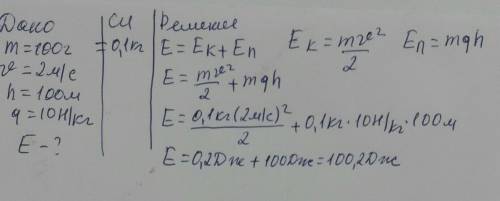 Дано
m=100г
v=2м/с
h=100м
g=10Н/кг
E-?
Си
=0,1кг
Решение
E=Eк+Eп   Eк=mv²/2   Eп=mgh
E=mv²/2+mgh
E=0,1кг(2м/с)²/2+0,1кг·10Н/кг·100м
E=0,2Дж+100Дж=100,2Дж